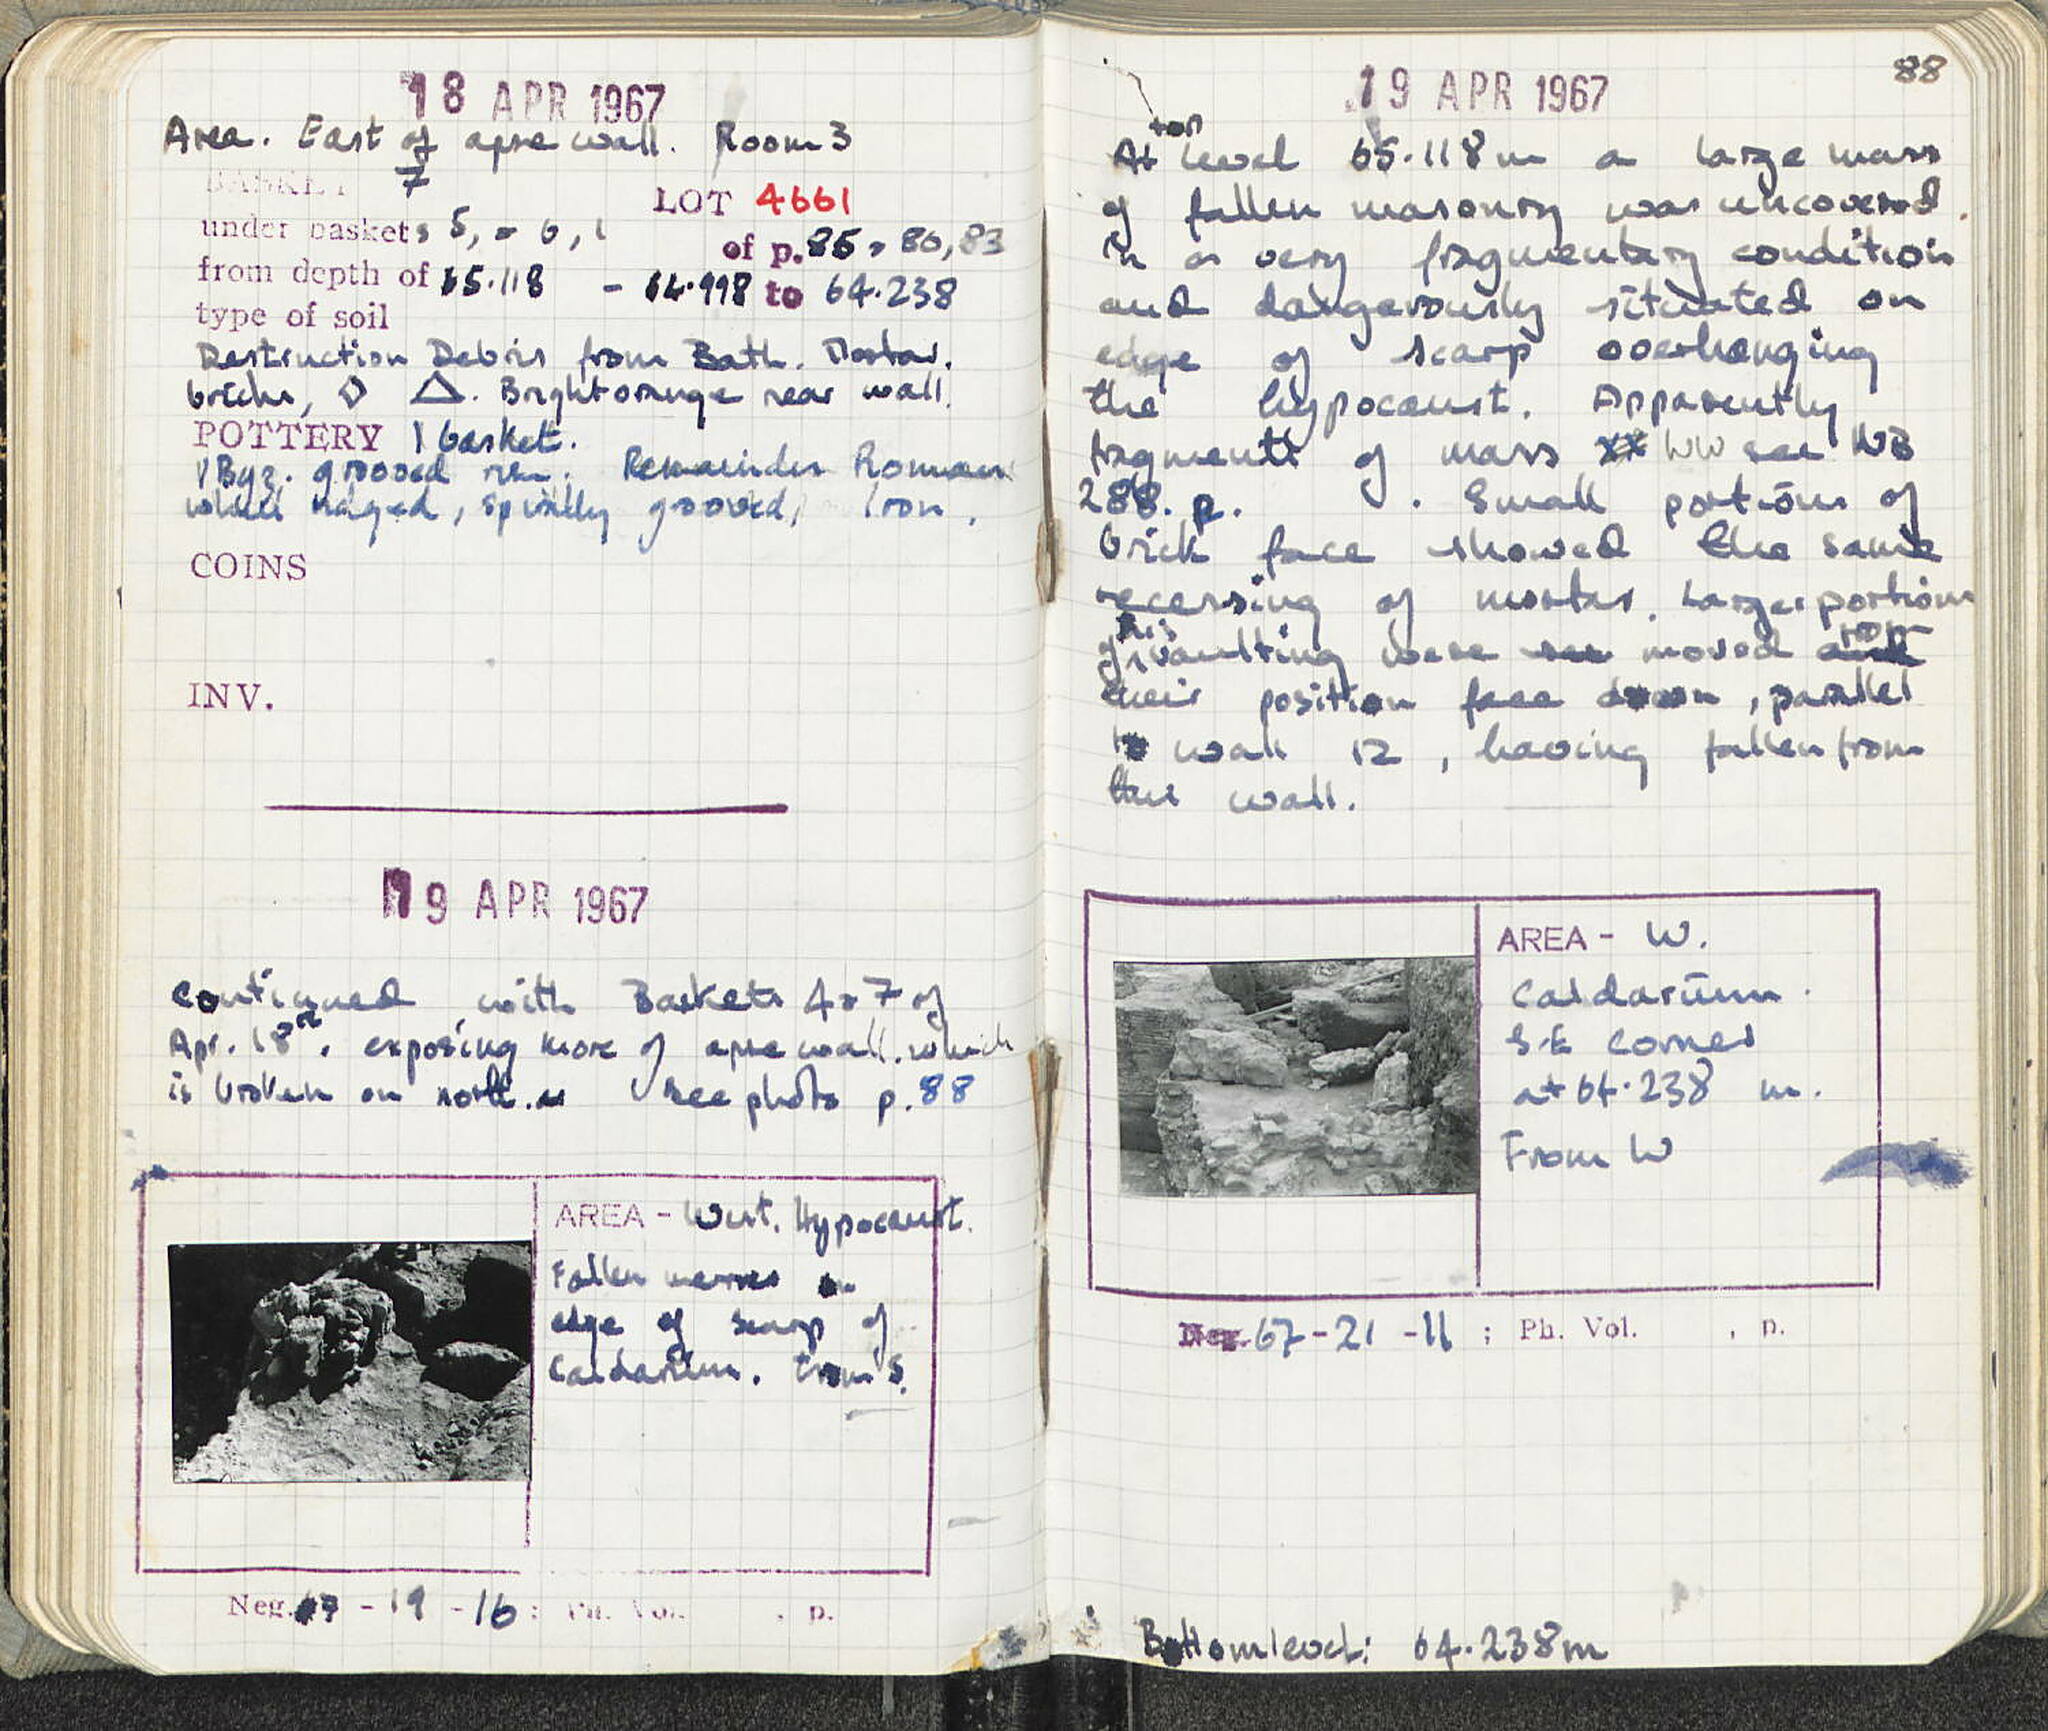 18 APR 1967
Area. East of apse wall. Room 3
BASKET 7
LOT 4661
under baskets 5, 6, 1
of p. 85, 86, 83
from depth of 65.118 - 64.998 to 64.238
type of soil
Destruction Debris from Bath. Mortar.
bricks, ◊ △. Bright orange near wall.
POTTERY 1 basket.
1 Byz. grooved rim. Remainder Roman
wheel ridged, spirally grooved, iron.
COINS
INV.
19 APR 1967
Continued with Baskets 4 & 7 of
Apr. 18th. exposing more of apse wall. which
is broken on north. see photo p. 88
AREA - West. Hypocaust.
Fallen masses on
edge of scarp of
Caldarium. From S.
Neg. 67 - 19 - 16 ; Ph. Vol. , p.
88
19 APR 1967
At top level 65.118 m a large mass
of fallen masonry was uncovered.
in a very fragmentary condition
and dangerously situated on
edge of scarp overhanging
the hypocaust. Apparently
fragments of mass WW see NB
288. p. . Small portions of
brick face showed the same
recessing of mortar. Larger portions
of this vaulting were moved from
their position face down, parallel
to wall 12, having fallen from
this wall.
AREA - W.
Caldarium.
S.E corner
at 64.238 m.
From W
Neg. 67 - 21 - 11 ; Ph. Vol. , p.
Bottom level: 64.238m